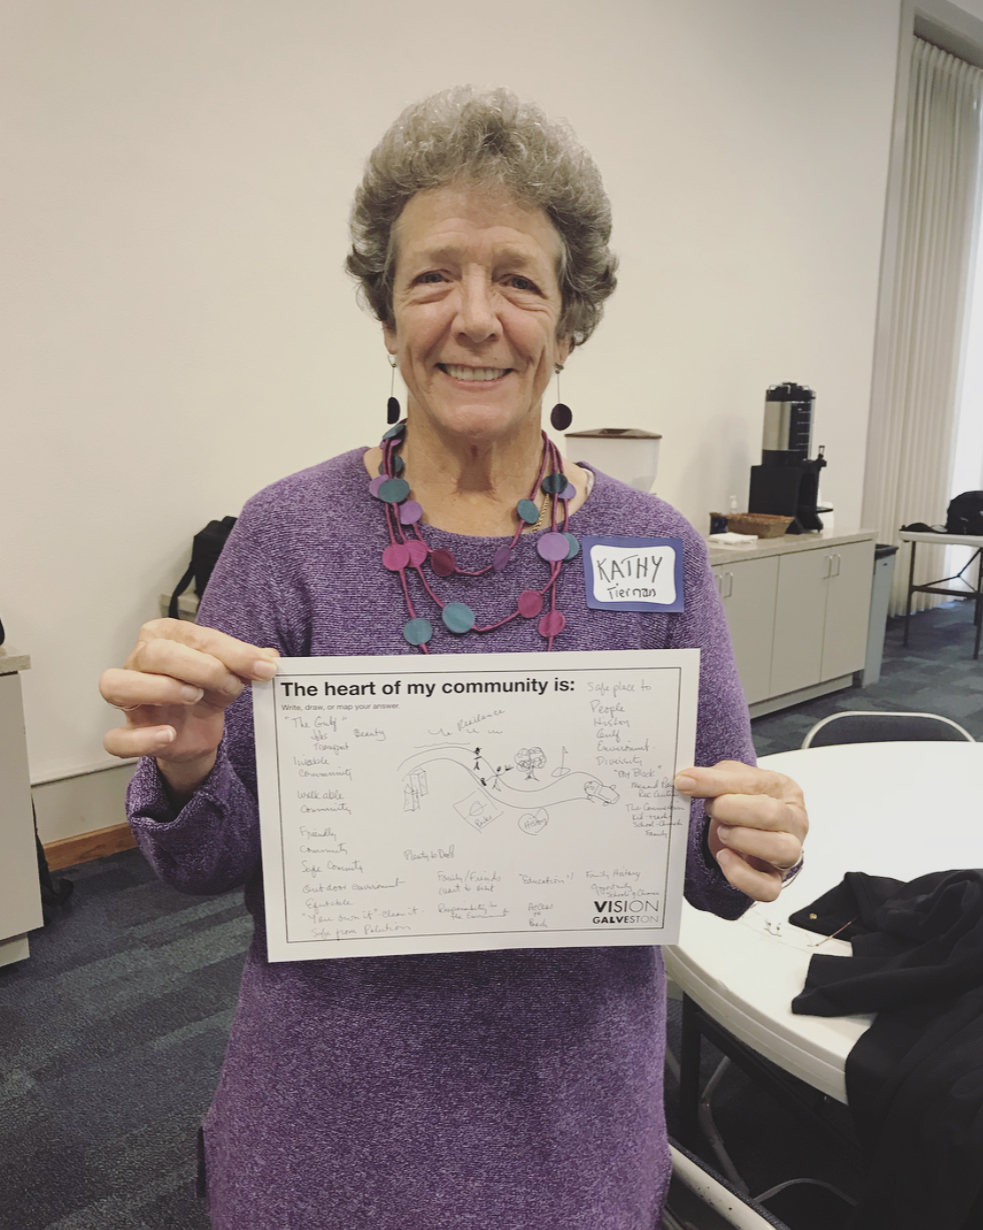 KATHY
Tiernan
The heart of my community is:
Write, draw, or map your answer.
Safe place to
People
History
Gulf
Environment
Diversity
"My Block"
"The Gulf"
Jobs
Beauty
Transport
livable
Community
walkable
Community
Friendly
Community
Safe Community
Outdoor environment
Equitable
"You own it" - clean it
Safe from
Resilience
Parks
History
Family/Friends
want to visit
Responsibility to
the
"Education"
Access
to
Beach
Family History
Opportunity
School
Family
VISION
GALVESTON